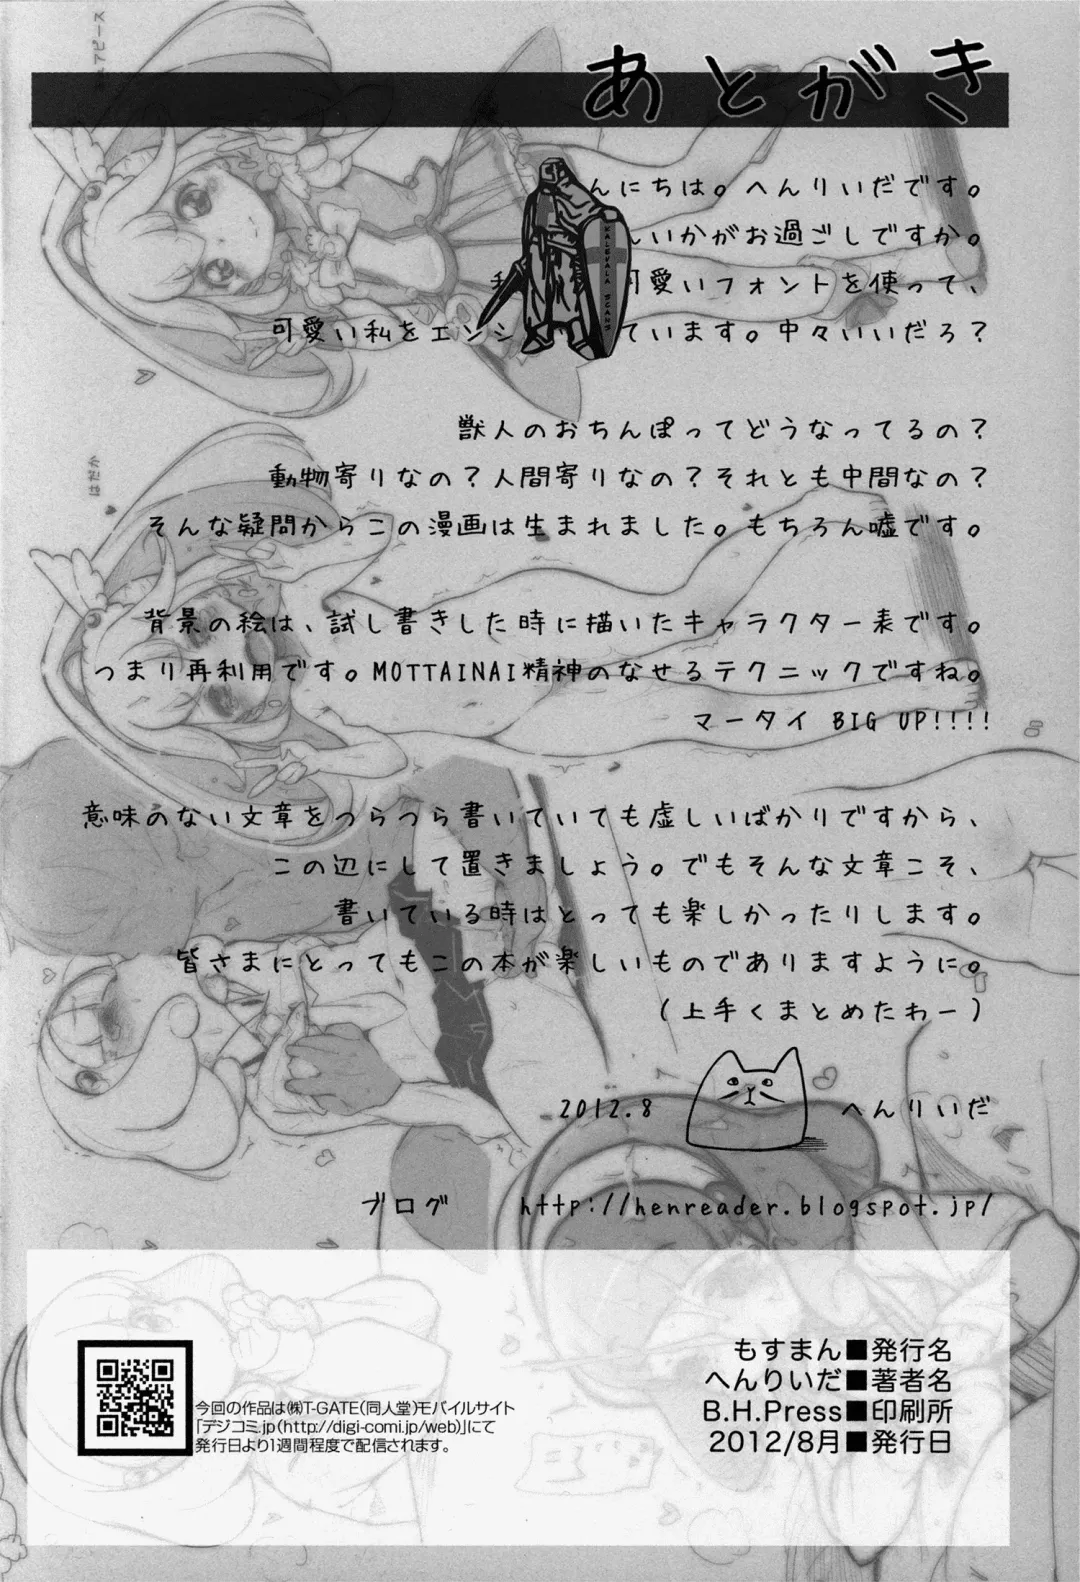 あとがき
んにちは。へんりいだです。
いかがお過ごしですか。
可愛いフォントを使って、
可愛い私をエンシ ています。中々いいだろ?
獣人のおちんぽってどうなってるの?
動物寄りなの?人間寄りなの?それとも中間なの?
そんな疑問からこの漫画は生まれました。もちろん嘘です。
背景の絵は、試し書きした時に描いたキャラクター表です。
つまり再利用です。MOTTAINAI精神のなせるテクニックですね。
マータイ BIG UP!!!!
意味のない文章をつらつら書いていても虚しいばかりですから、
この辺にして置きましょう。でもそんな文章こそ、
書いている時はとっても楽しかったりします。
皆さまにとってもこの本が楽しいものでありますように。
(上手くまとめたわー)
2012.8 へんりいだ
ブログ http://henreader.blogspot.jp/
KALEVALA SCANS
はだか
もすまん■発行名
へんりいだ■著者名
B.H.Press■印刷所
2012/8月■発行日
今回の作品は㈱T-GATE(同人堂)モバイルサイト
「デジコミ.jp(http://digi-comi.jp/web)」にて
発行日より1週間程度で配信されます。